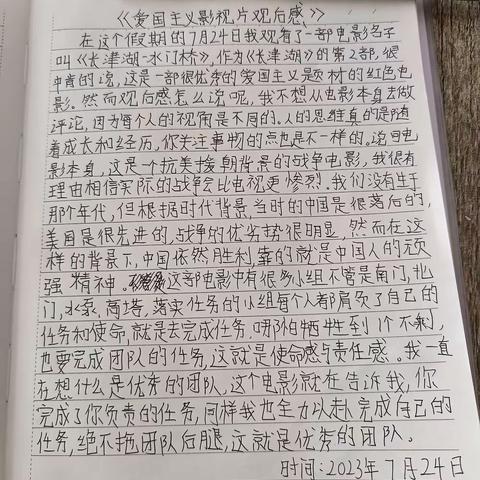 《爱国主义影视片观后感》
在这个假期的7月24日我观看了一部电影名字
叫《长津湖-水门桥》,作为《长津湖》的第2部,很
中肯的说,这是一部很优秀的爱国主义题材的红色电
影。然而观后感怎么说呢,我不想从电影本身去做
评论,因为每个人的视角是不同的。人的思维真的是随
着成长和经历,你关注事物的点也是不一样的。说回电
影本身,这是一个抗美援朝背景的战争电影,我很有
理由相信实际的战争会比电视更惨烈。我们没有生于
那个年代,但根据时代背景,当时的中国是很落后的,
美国是很先进的,战争的优劣势很明显,然而在这
样的背景下,中国依然胜利,靠的就是中国人的顽
强精神。这部电影中有很多小组不管是南门,北
门,水泵,高塔,落实任务的小组每个人都肩负了自己的
任务和使命,就是去完成任务,哪怕牺牲到1个不剩,
也要完成团队的任务,这就是使命感与责任感。我一直
在想什么是优秀的团队,这个电影就在告诉我,你
完成了你负责的任务,同样我也全力以赴完成自己的
任务,绝不拖团队后腿,这就是优秀的团队。
时间:2023年7月24日